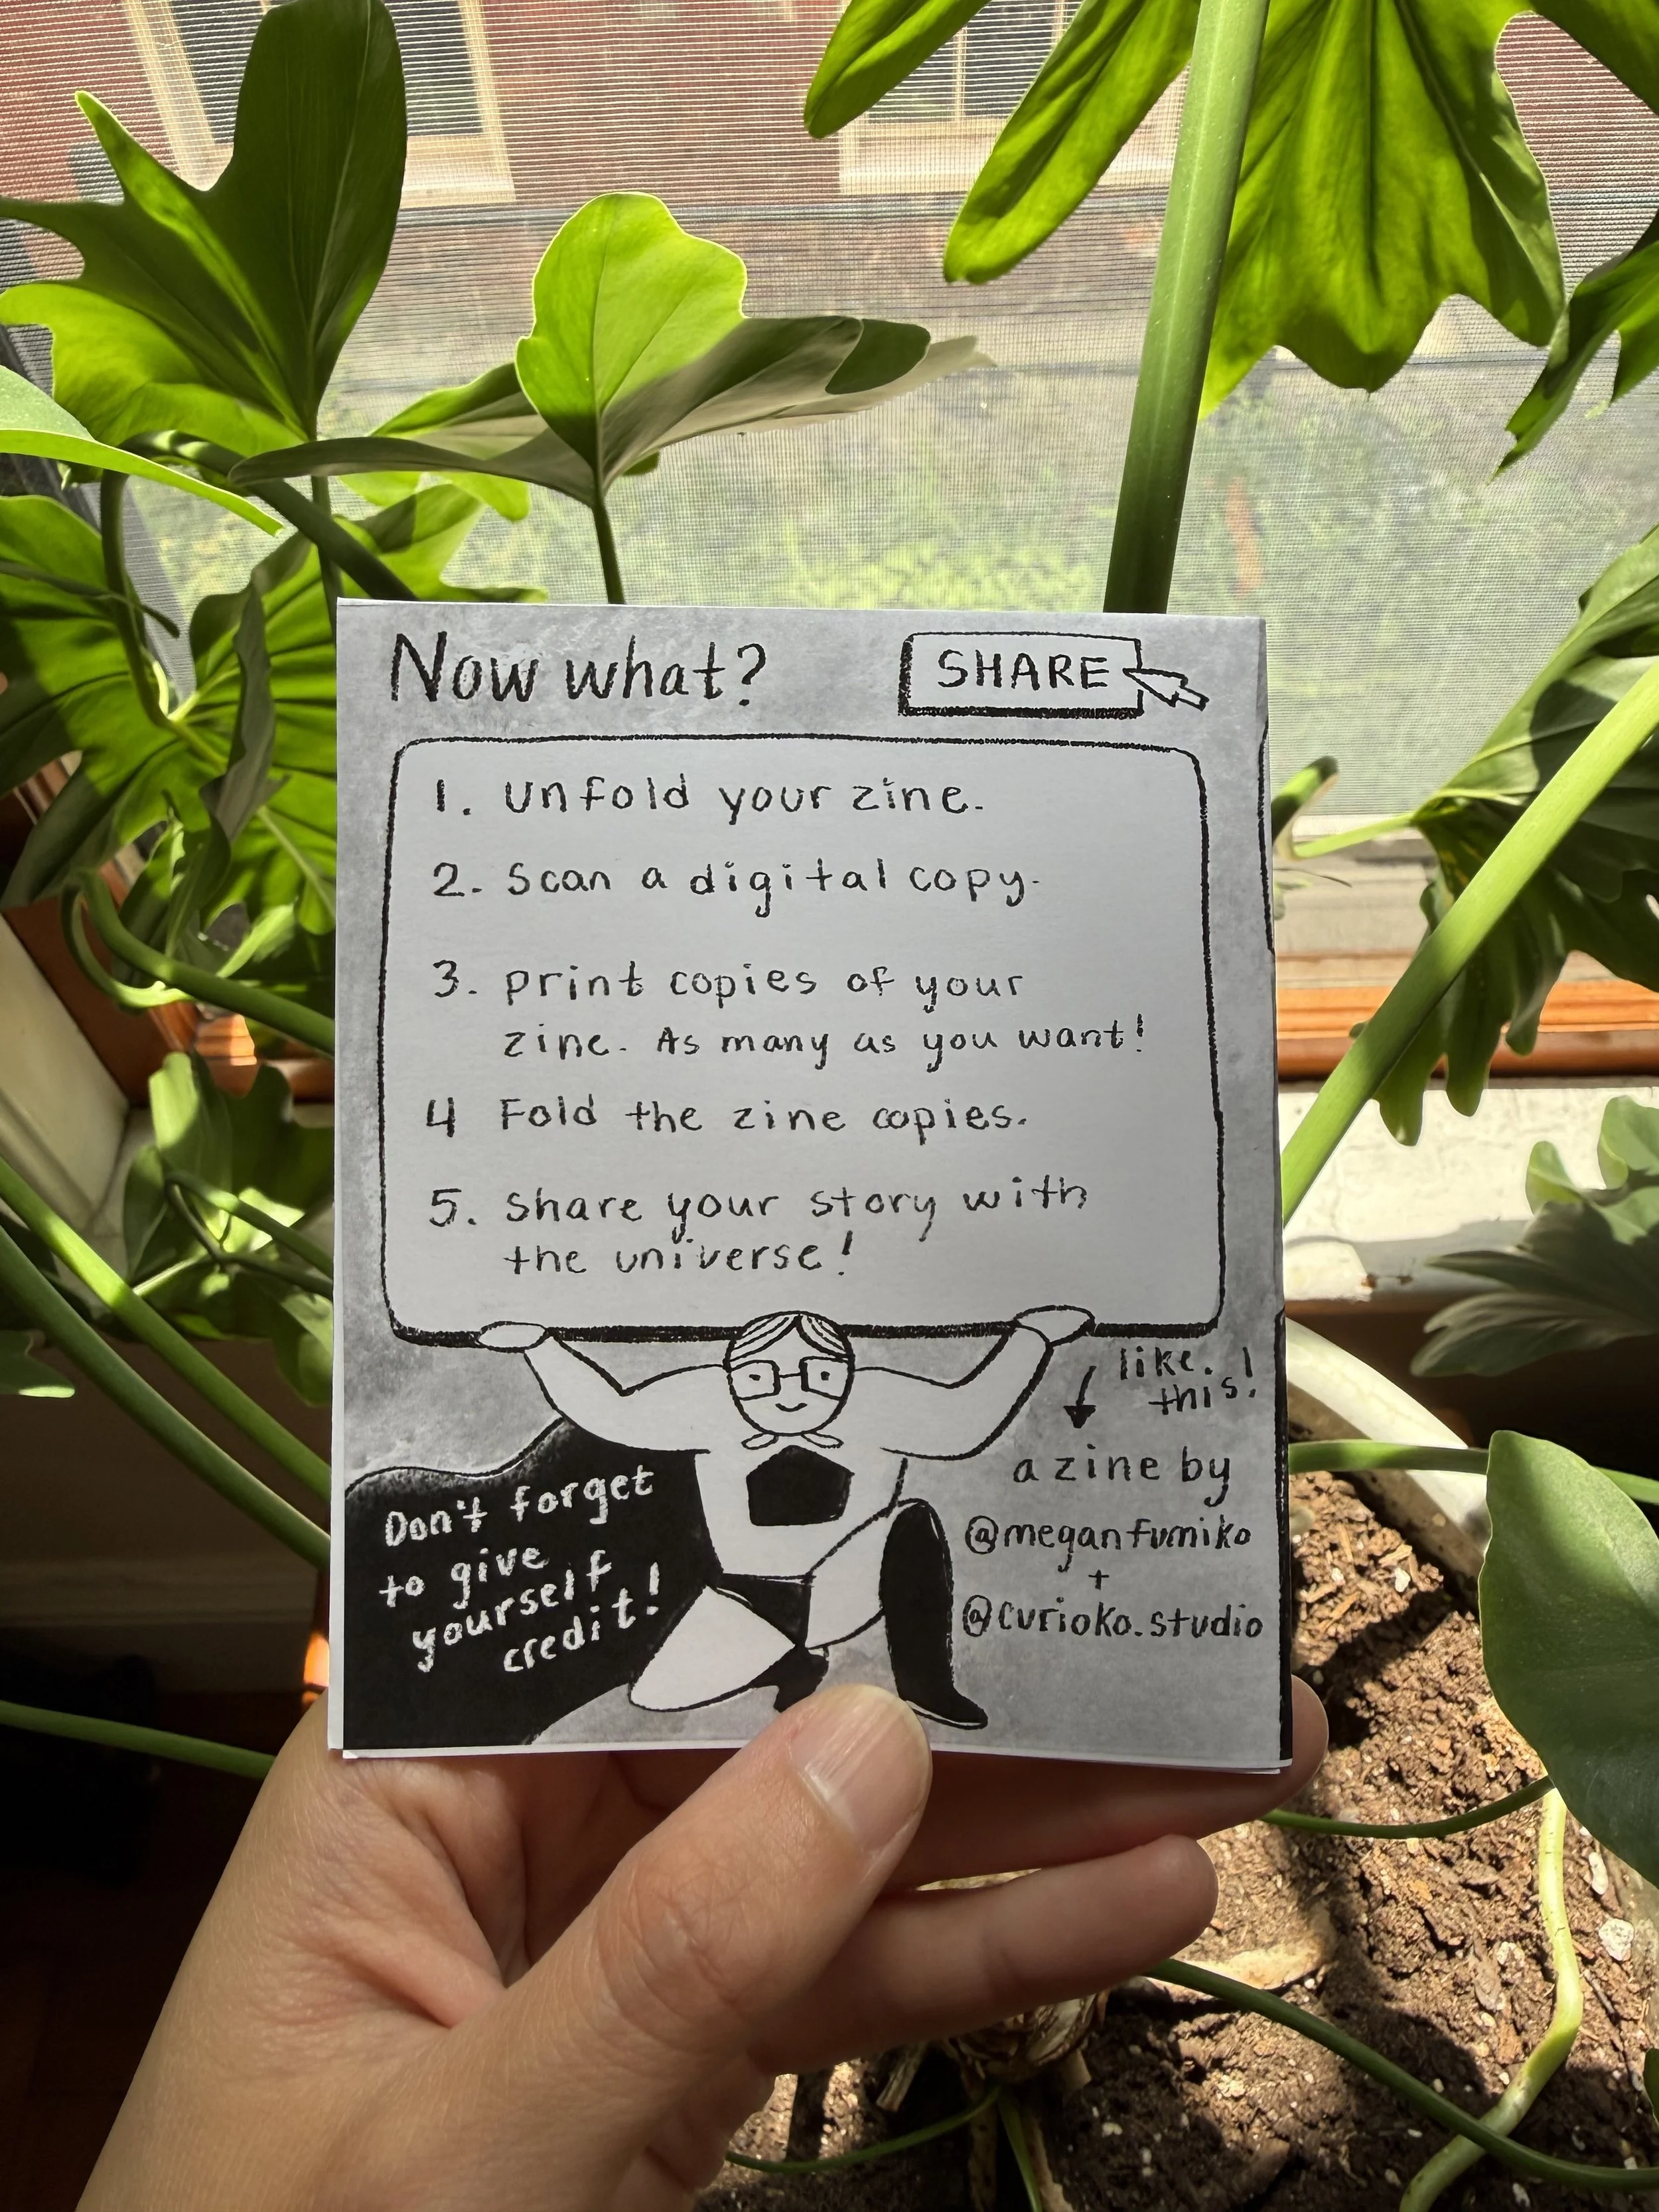 Now what?
SHARE
1. Unfold your zine.
2. Scan a digital copy.
3. print copies of your
zine. As many as you want!
4 Fold the zine copies.
5. Share your story with
the universe!
like this!
a zine by
@meganfumiko
+
@curioko.studio
Don't forget
to give
yourself
credit!